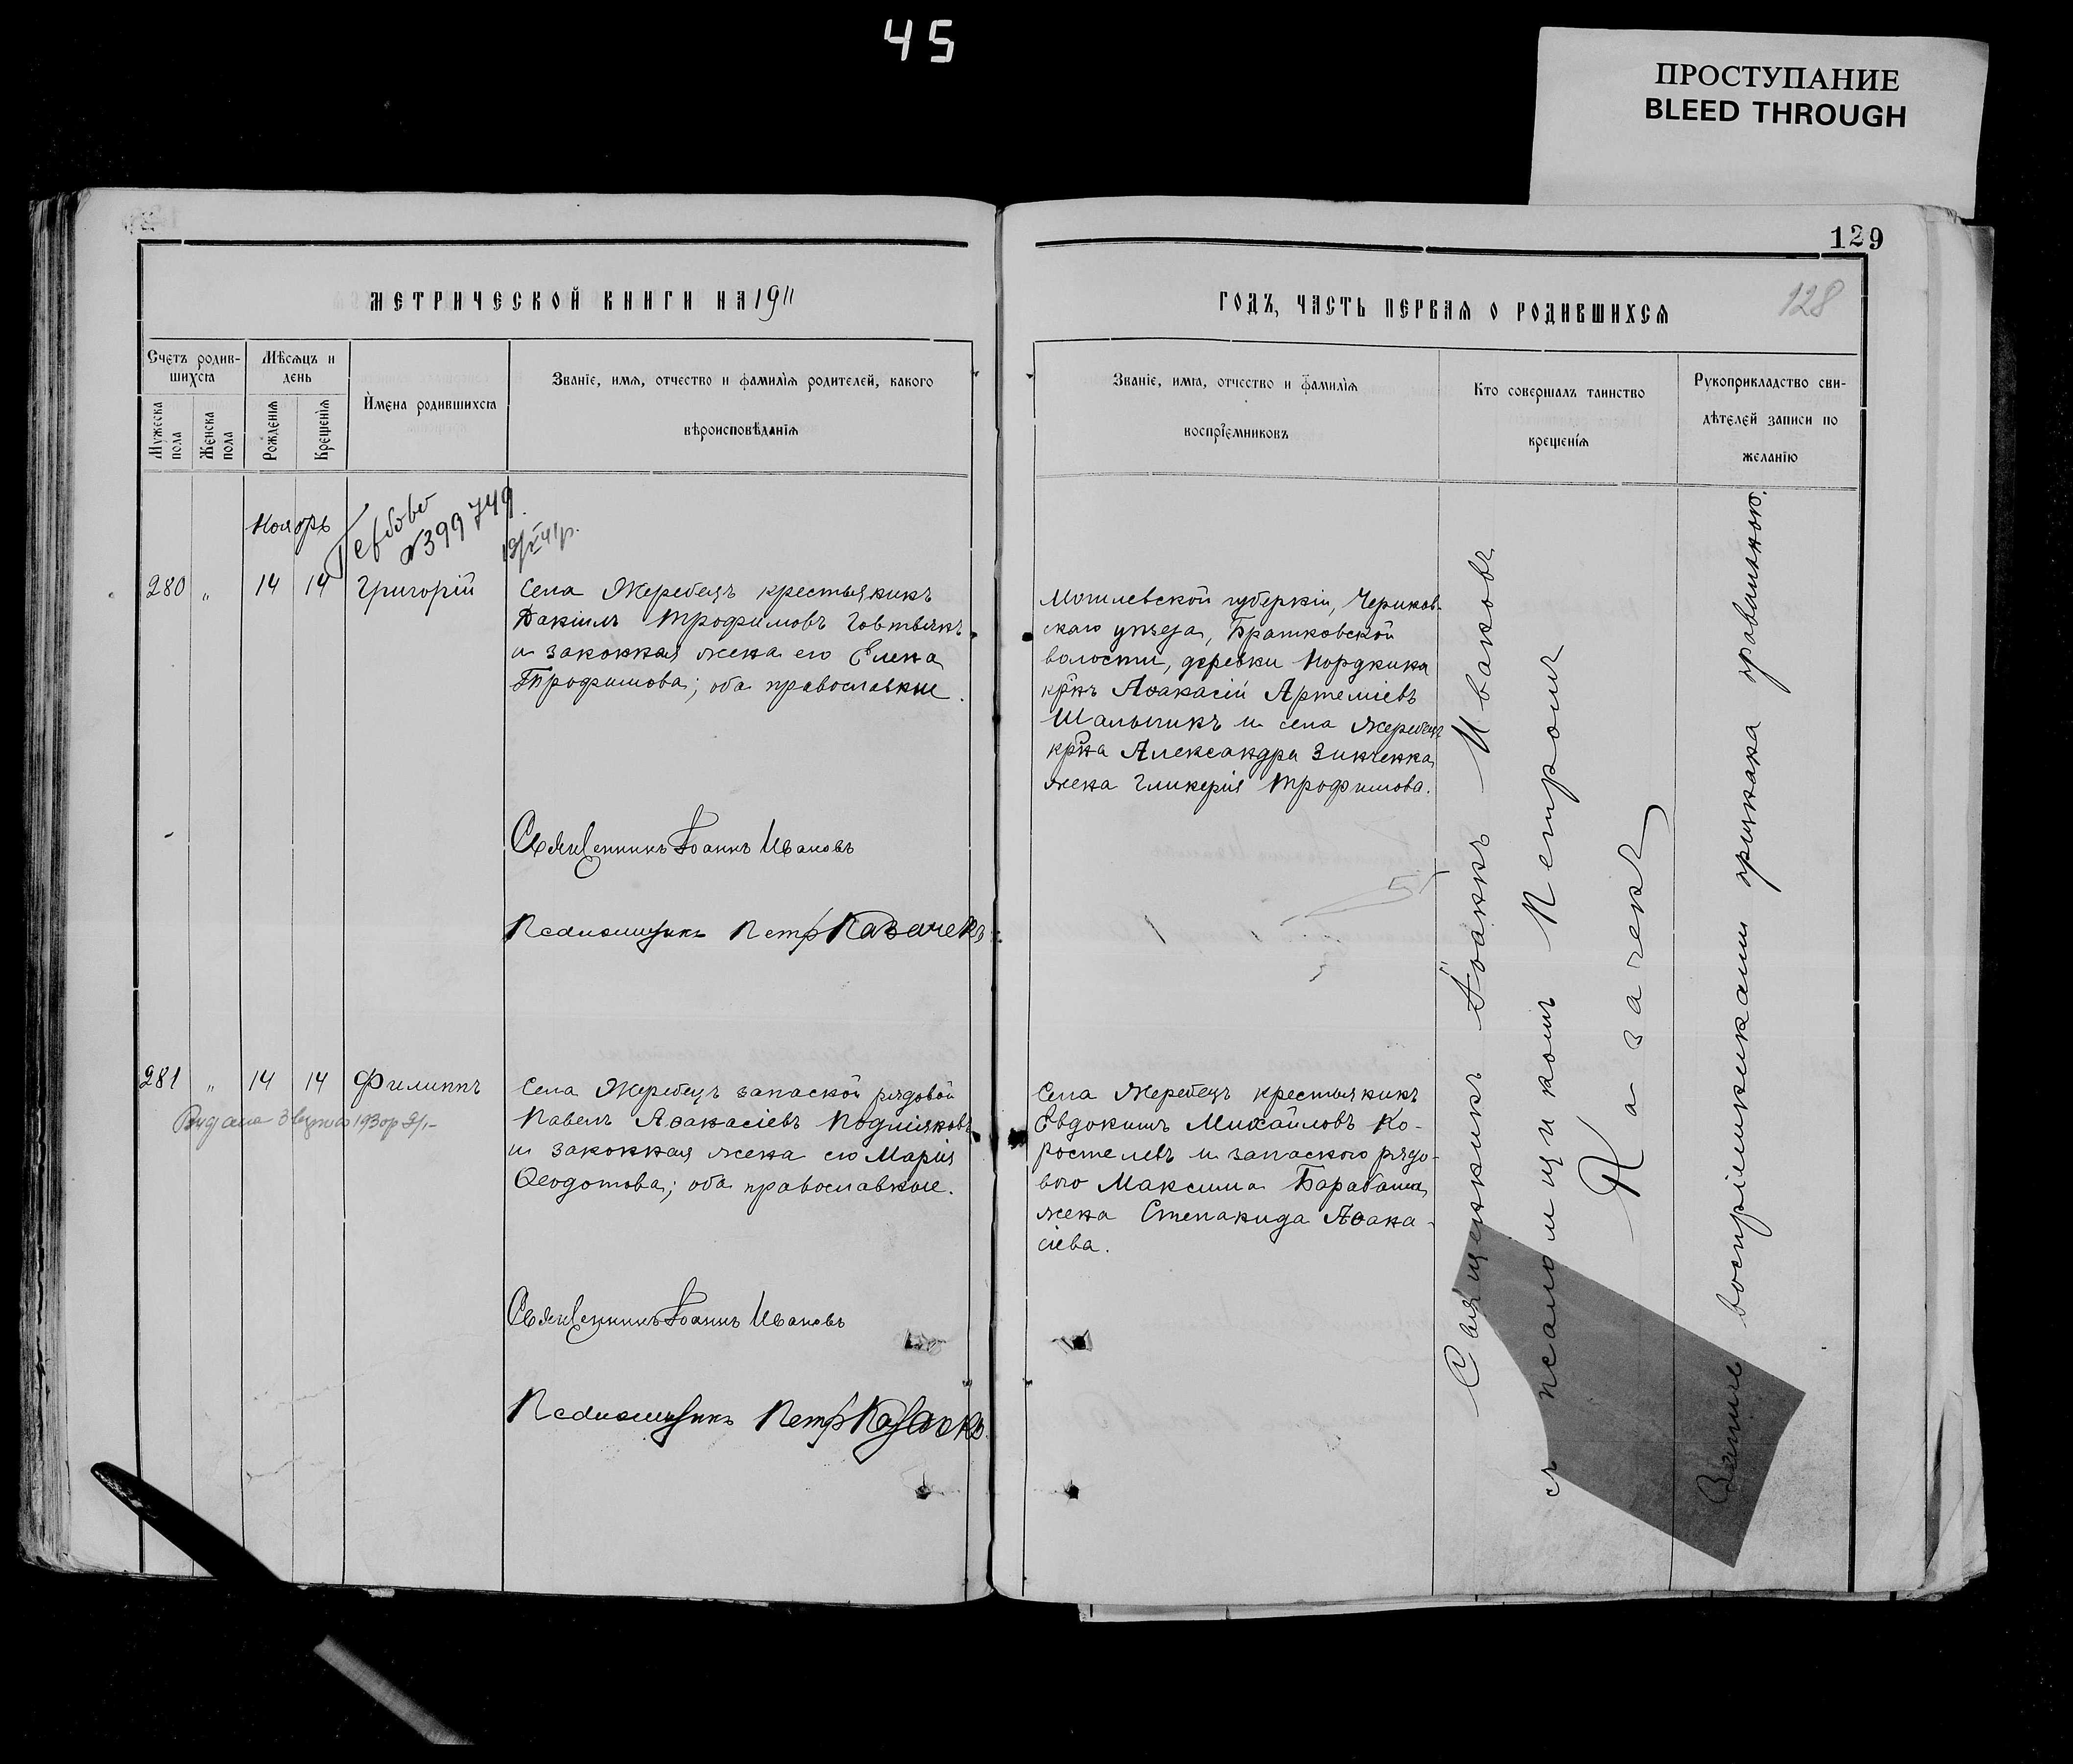 45
ПРОСТУПАНИЕ
BLEED THROUGH
129
128
МЕТРИЧЕСКОЙ КНИГИ НА 1911
ГОДЪ, ЧАСТЬ ПЕРВАЯ О РОДИВШИХСЯ
Счетъ родив-
шихся
Мѣсяцъ и
день
Имена родившихся
Званіе, имя, отчество и фамилія родителей, какого
вѣроисповѣданія
Мужеска
пола
Женска
пола
Рожденія
Крещенія
Званіе, имя, отчество и фамилія
воспріемниковъ
Кто совершалъ таинство
крещенія
Рукоприкладство сви-
дѣтелей записи по
желанію
Ноябрь
№399749
280 " 14 14 Григорій
Села Жеребецъ крестьянинъ
Даніилъ Трофимовъ Говтвянъ
и законная жена его Елена
Трофимова; оба православные.
Могилевской губерніи, Чериков-
скаго уѣзда, Братковской
волости, деревни
кр̃нъ Аѳанасій Артеміевъ
и села Жеребецъ
кр̃на Александра Зинченка
жена Гликерія Трофимова.
Священникъ Іоаннъ Ивановъ
Псаломщикъ Петръ Казачекъ
281 " 14 14 Филиппъ
Выдана 1930р
Села Жеребецъ запасной рядовой
Павелъ Аѳанасіевъ
и законная жена его Марія
Ѳеодотова; оба православные.
Села Жеребецъ крестьянинъ
Евдокимъ Михайловъ Ко-
ростелевъ и запаснаго рядо-
вого Максима Барабаша
жена Степанида Аѳана-
сіева.
Священникъ Іоаннъ Ивановъ
Псаломщикъ Петръ Казачекъ
Священникъ Іоаннъ Ивановъ
съ псаломщикомъ Петромъ
Казачекъ
воспріемниками